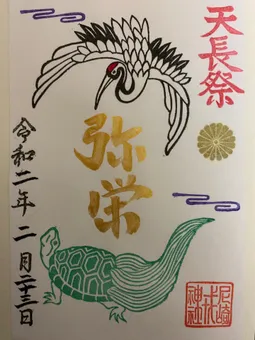 天長祭
弥栄
令和二年 二月二十三日
尼崎
戎
神社